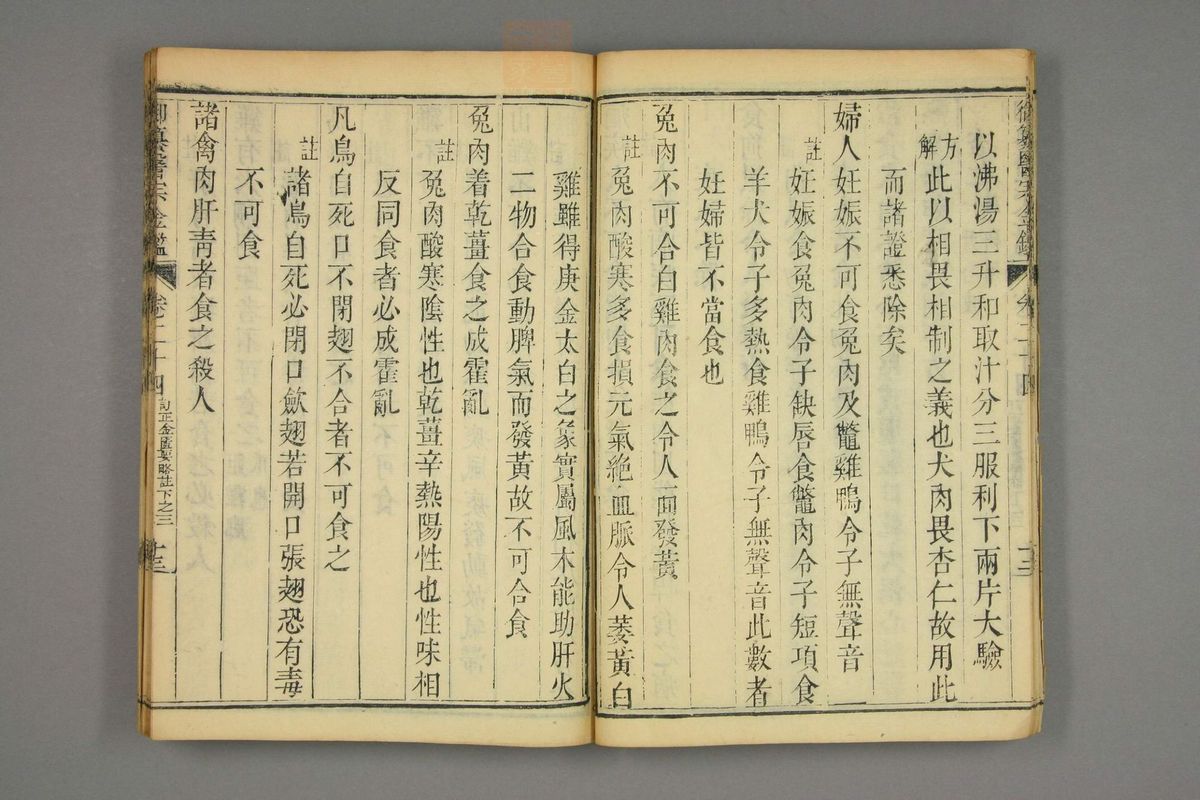 以沸湯三升和取汁分三服利下兩片大驗
方解此以相畏相制之義也犬肉畏杏仁故用此
而諸證悉除矣
婦人妊娠不可食兔肉及鼈雞鴨令子無聲音
註妊娠食兔肉令子缺唇食鼈肉令子短項食
羊犬令子多熱食雞鴨令子無聲音此數者
妊婦皆不當食也
兔肉不可合白雞肉食之令人面發黃
註兔肉酸寒多食損元氣絕血脈令人萎黃白
雞雖得庚金太白之象實屬風木能助肝火
二物合食動脾氣而發黃故不可合食
兔肉着乾薑食之成霍亂
註兔肉酸寒陰性也乾薑辛熱陽性也性味相
反同食者必成霍亂
凡鳥自死口不閉翅不合者不可食之
註諸鳥自死必閉口斂翅若開口張翅恐有毒
不可食
諸禽肉肝青者食之殺人
御纂醫宗金鑑 卷二十四 訂正金匱要略註下之三 十三